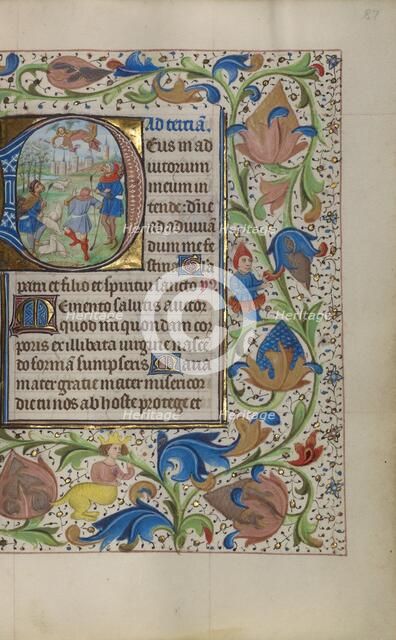 87
Ad terciā.
Eus in ad
iutorium
meum in
tende: dn̄e
ad iuuan
dum me fe
stina Gla
patri et filio et spiritui sancto
Memento salutis auctor
quod nr̄i quondam cor
poris ex illibata uirgine nasce
do formam sumpseris Maria
mater gratie mater misericor
die tu nos ab hoste protege et
Heritage